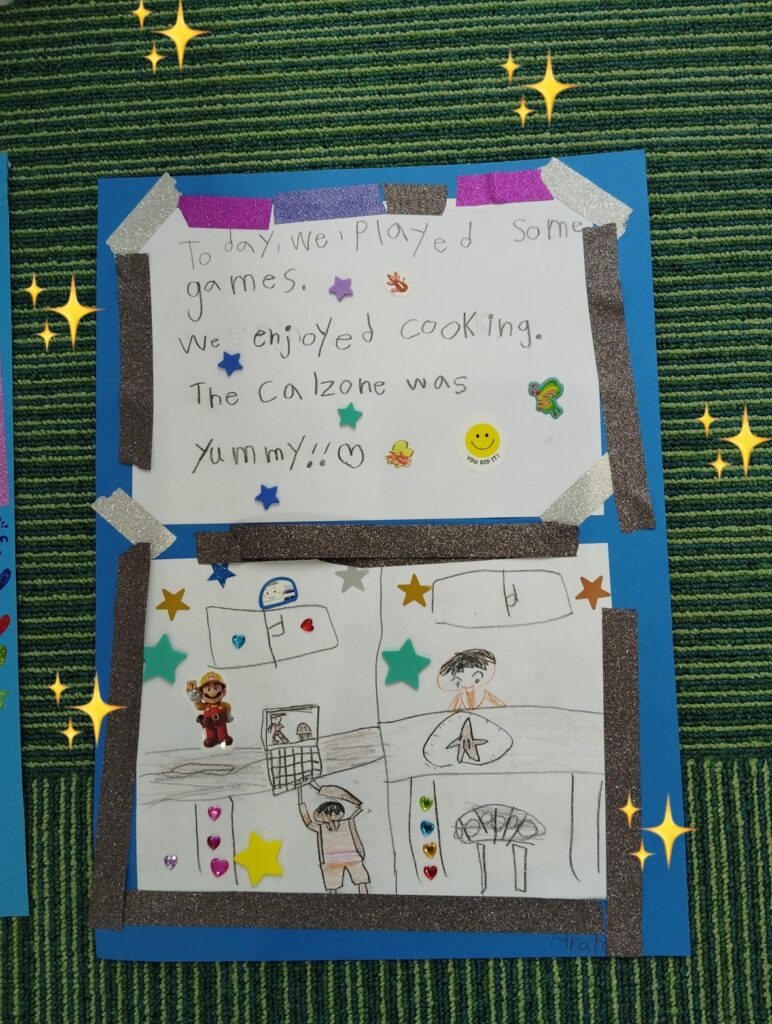 To day, we, played some
games.
We enjoyed cooking.
The calzone was
yummy!!♡
YOU DID IT!